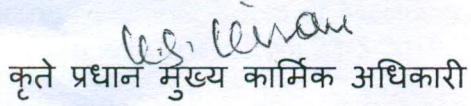 कृते प्रधान मुख्य कार्मिक अधिकारी